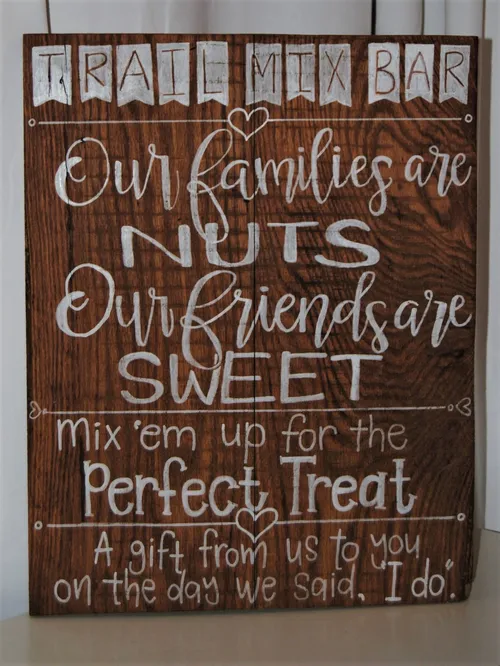 TRAIL MIX BAR
Our families are
NUTS
Our friends are
SWEET
mix 'em up for the
Perfect Treat
A gift from us to you
on the day we said, "I do".